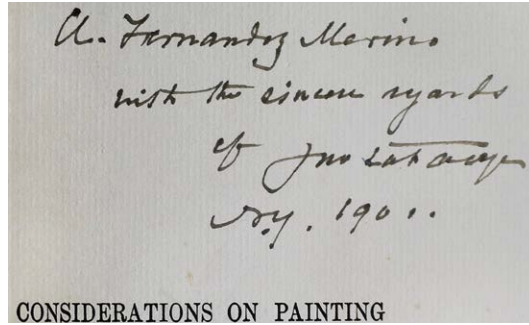 A. Fernandez Merino
with the sincere regards
of Jno La Farge
N.Y. 1901.
CONSIDERATIONS ON PAINTING